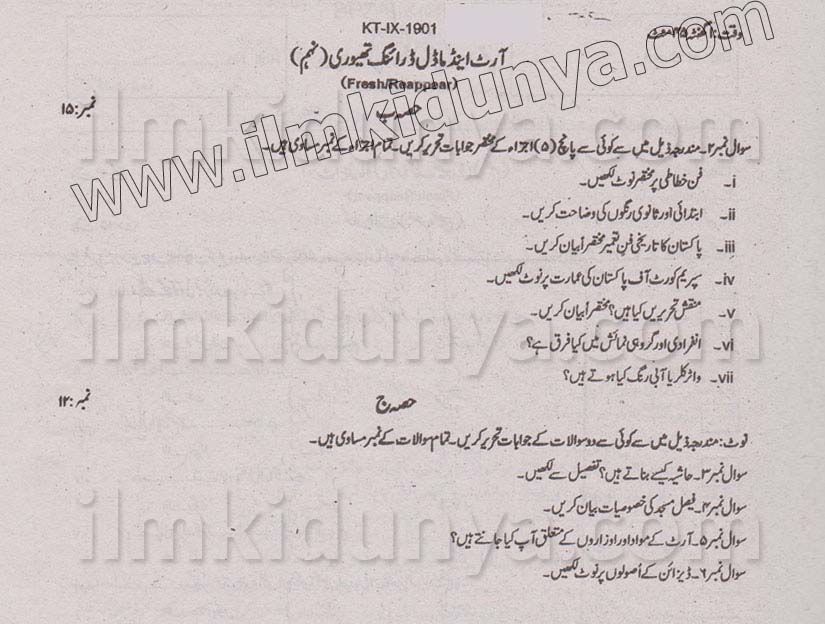 KT-IX-1901
وقت: ۱ گھنٹہ ۴۵ منٹ
آرٹ اینڈ ماڈل ڈرائنگ تھیوری (نہم)
(Fresh/Reappear)
حصہ ب
نمبر: ۱۵
سوال نمبر ۲۔ مندرجہ ذیل میں سے کوئی سے پانچ (۵) اجزاء کے مختصر جوابات تحریر کریں۔ تمام اجزاء کے نمبر مساوی ہیں۔
i۔ فن خطاطی پر مختصر نوٹ لکھیں۔
ii۔ ابتدائی اور ثانوی رنگوں کی وضاحت کریں۔
iii۔ پاکستان کا تاریخی فنِ تعمیر مختصراً بیان کریں۔
iv۔ سپریم کورٹ آف پاکستان کی عمارت پر نوٹ لکھیں۔
v۔ منقش تحریریں کیا ہیں؟ مختصراً بیان کریں۔
vi۔ انفرادی اور گروہی نمائش میں کیا فرق ہے؟
vii۔ واٹر کلر یا آبی رنگ کیا ہوتے ہیں؟
حصہ ج
نمبر: ۱۲
نوٹ: مندرجہ ذیل میں سے کوئی سے دو سوالات کے جوابات تحریر کریں۔ تمام سوالات کے نمبر مساوی ہیں۔
سوال نمبر ۳۔ حاشیہ کیسے بناتے ہیں؟ تفصیل سے لکھیں۔
سوال نمبر ۴۔ فیصل مسجد کی خصوصیات بیان کریں۔
سوال نمبر ۵۔ آرٹ کے مواد اور اوزاروں کے متعلق آپ کیا جانتے ہیں؟
سوال نمبر ۶۔ ڈیزائن کے اُصولوں پر نوٹ لکھیں۔
www.ilmkidunya.com
ilmkidunya.com
ilmkidunya.com
ilmkidunya.com